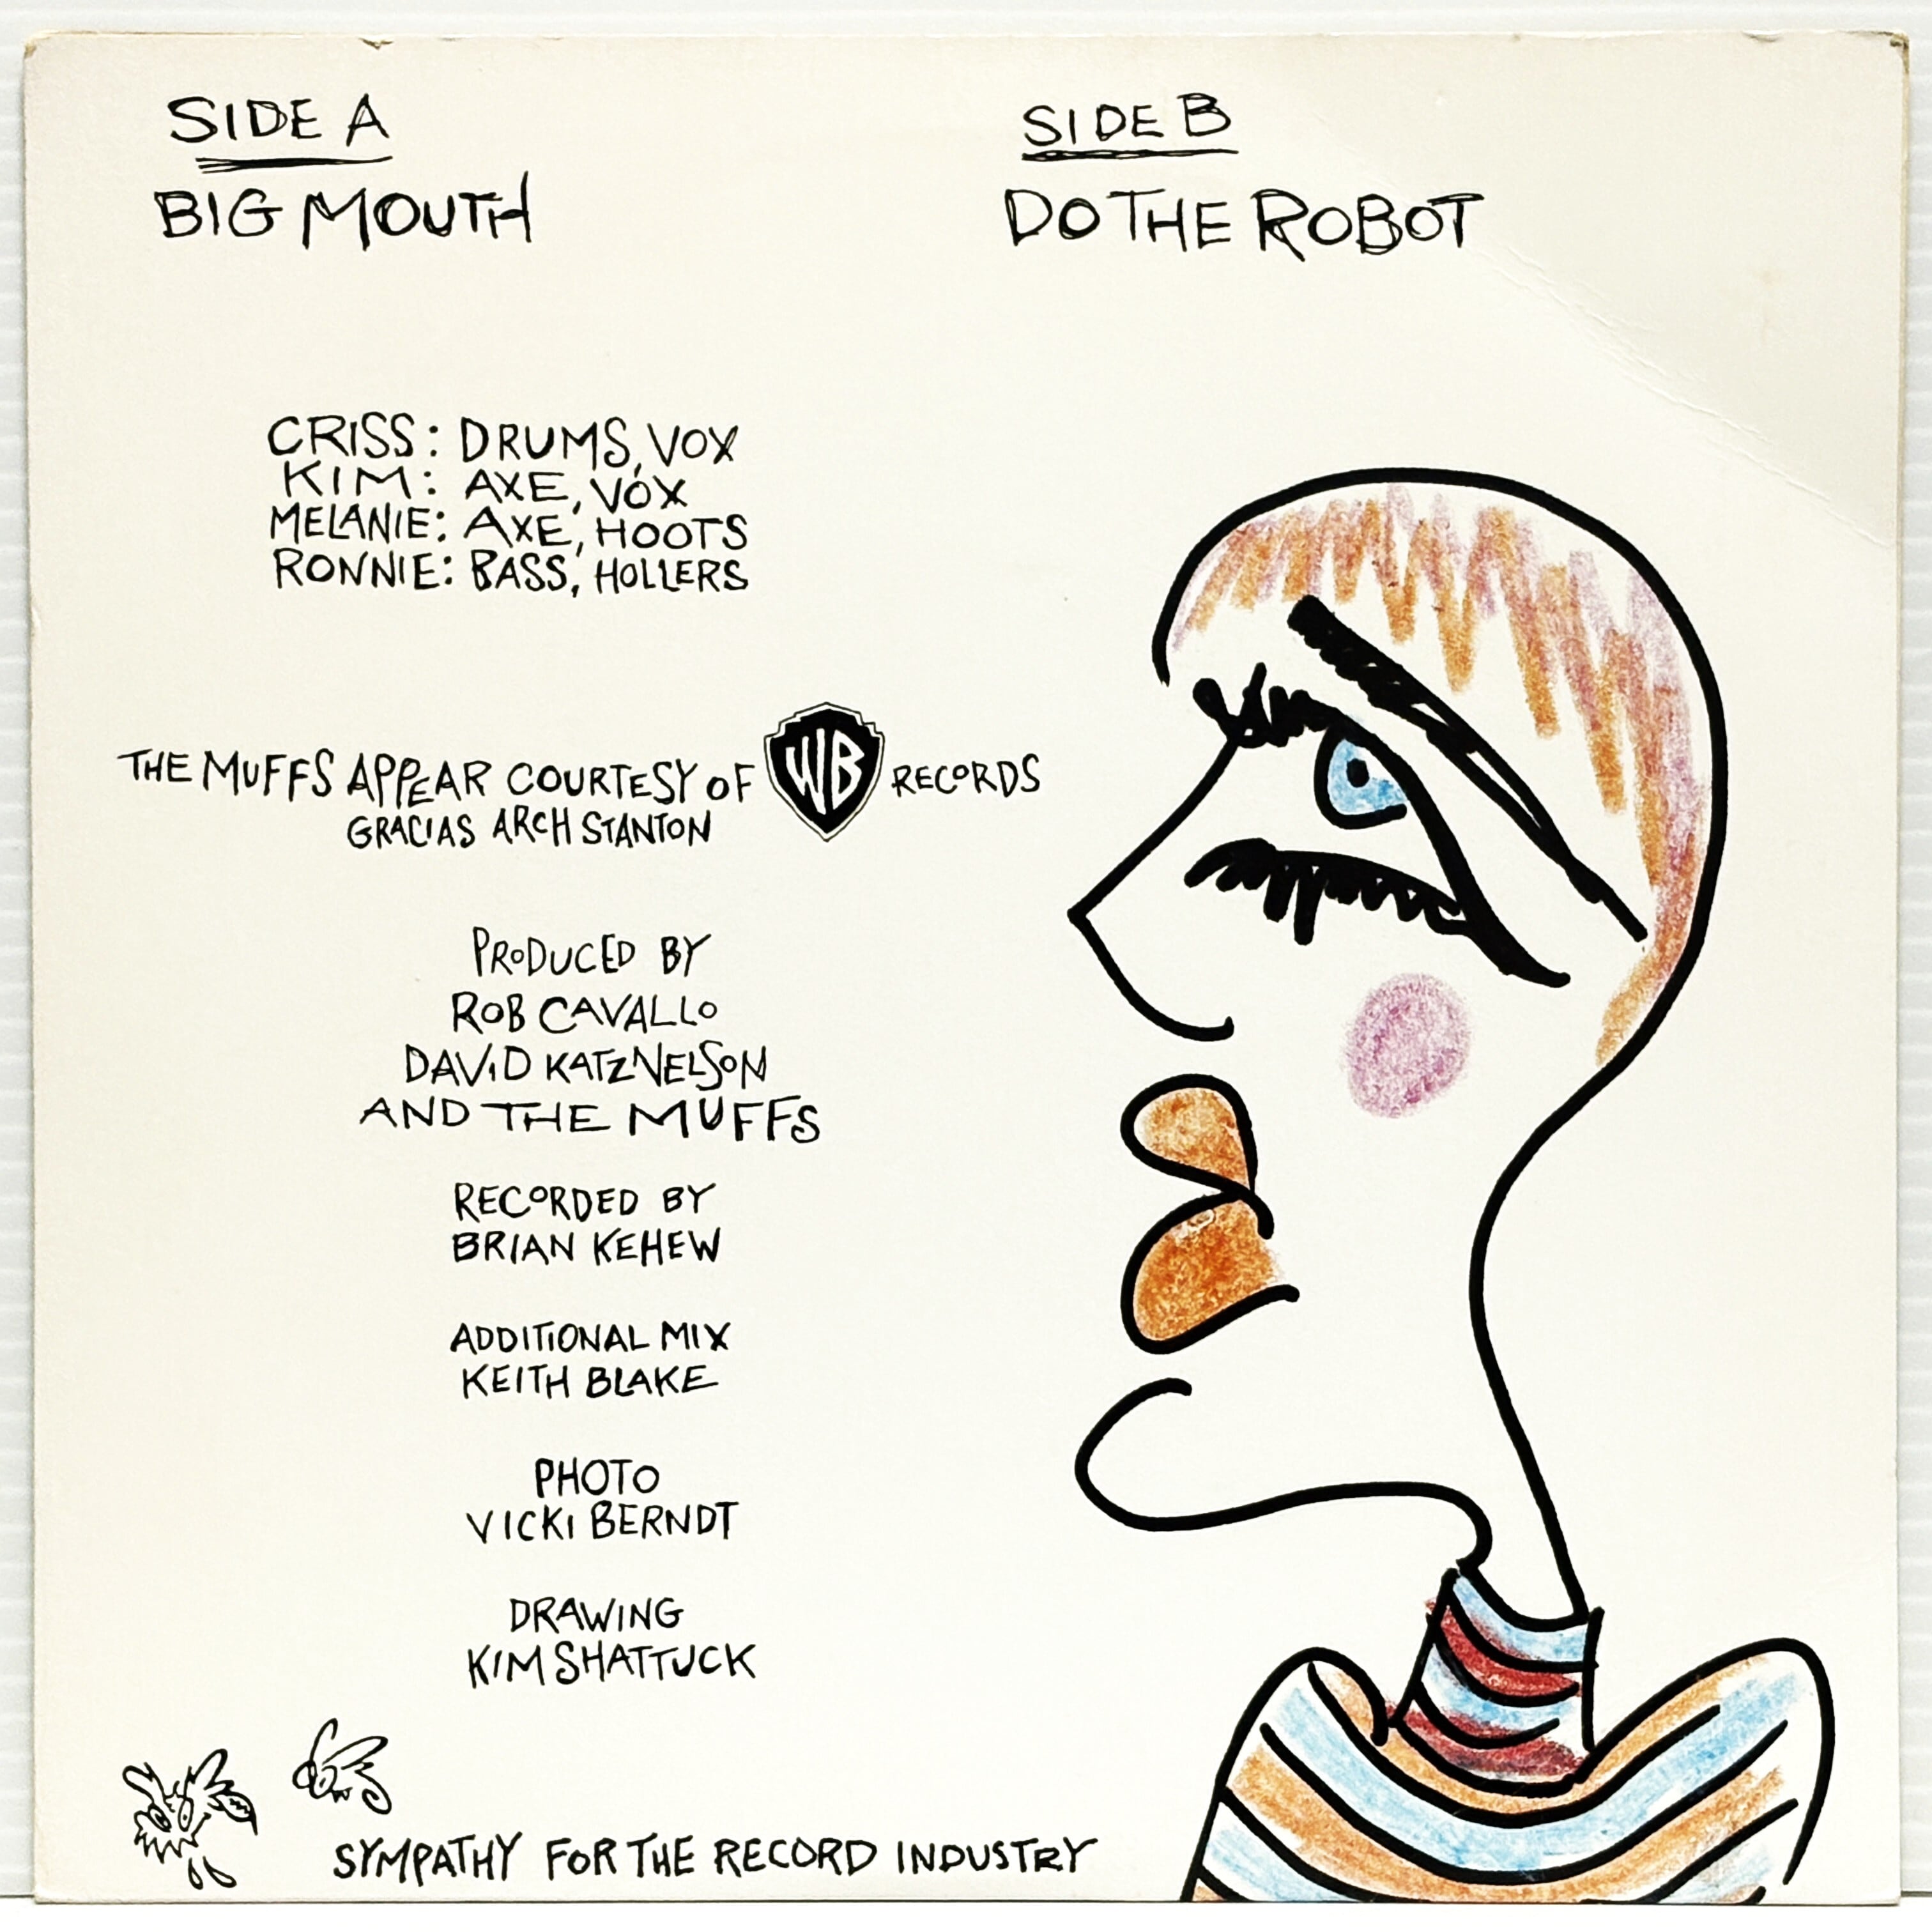 SIDE A
BIG MOUTH
SIDE B
DO THE ROBOT
CRISS: DRUMS, VOX
KIM: AXE, VOX
MELANIE: AXE, HOOTS
RONNIE: BASS, HOLLERS
THE MUFFS APPEAR COURTESY OF WB RECORDS
GRACIAS ARCH STANTON
PRODUCED BY
ROB CAVALLO
DAVID KATZNELSON
AND THE MUFFS
RECORDED BY
BRIAN KEHEW
ADDITIONAL MIX
KEITH BLAKE
PHOTO
VICKI BERNDT
DRAWING
KIM SHATTUCK
SYMPATHY FOR THE RECORD INDUSTRY